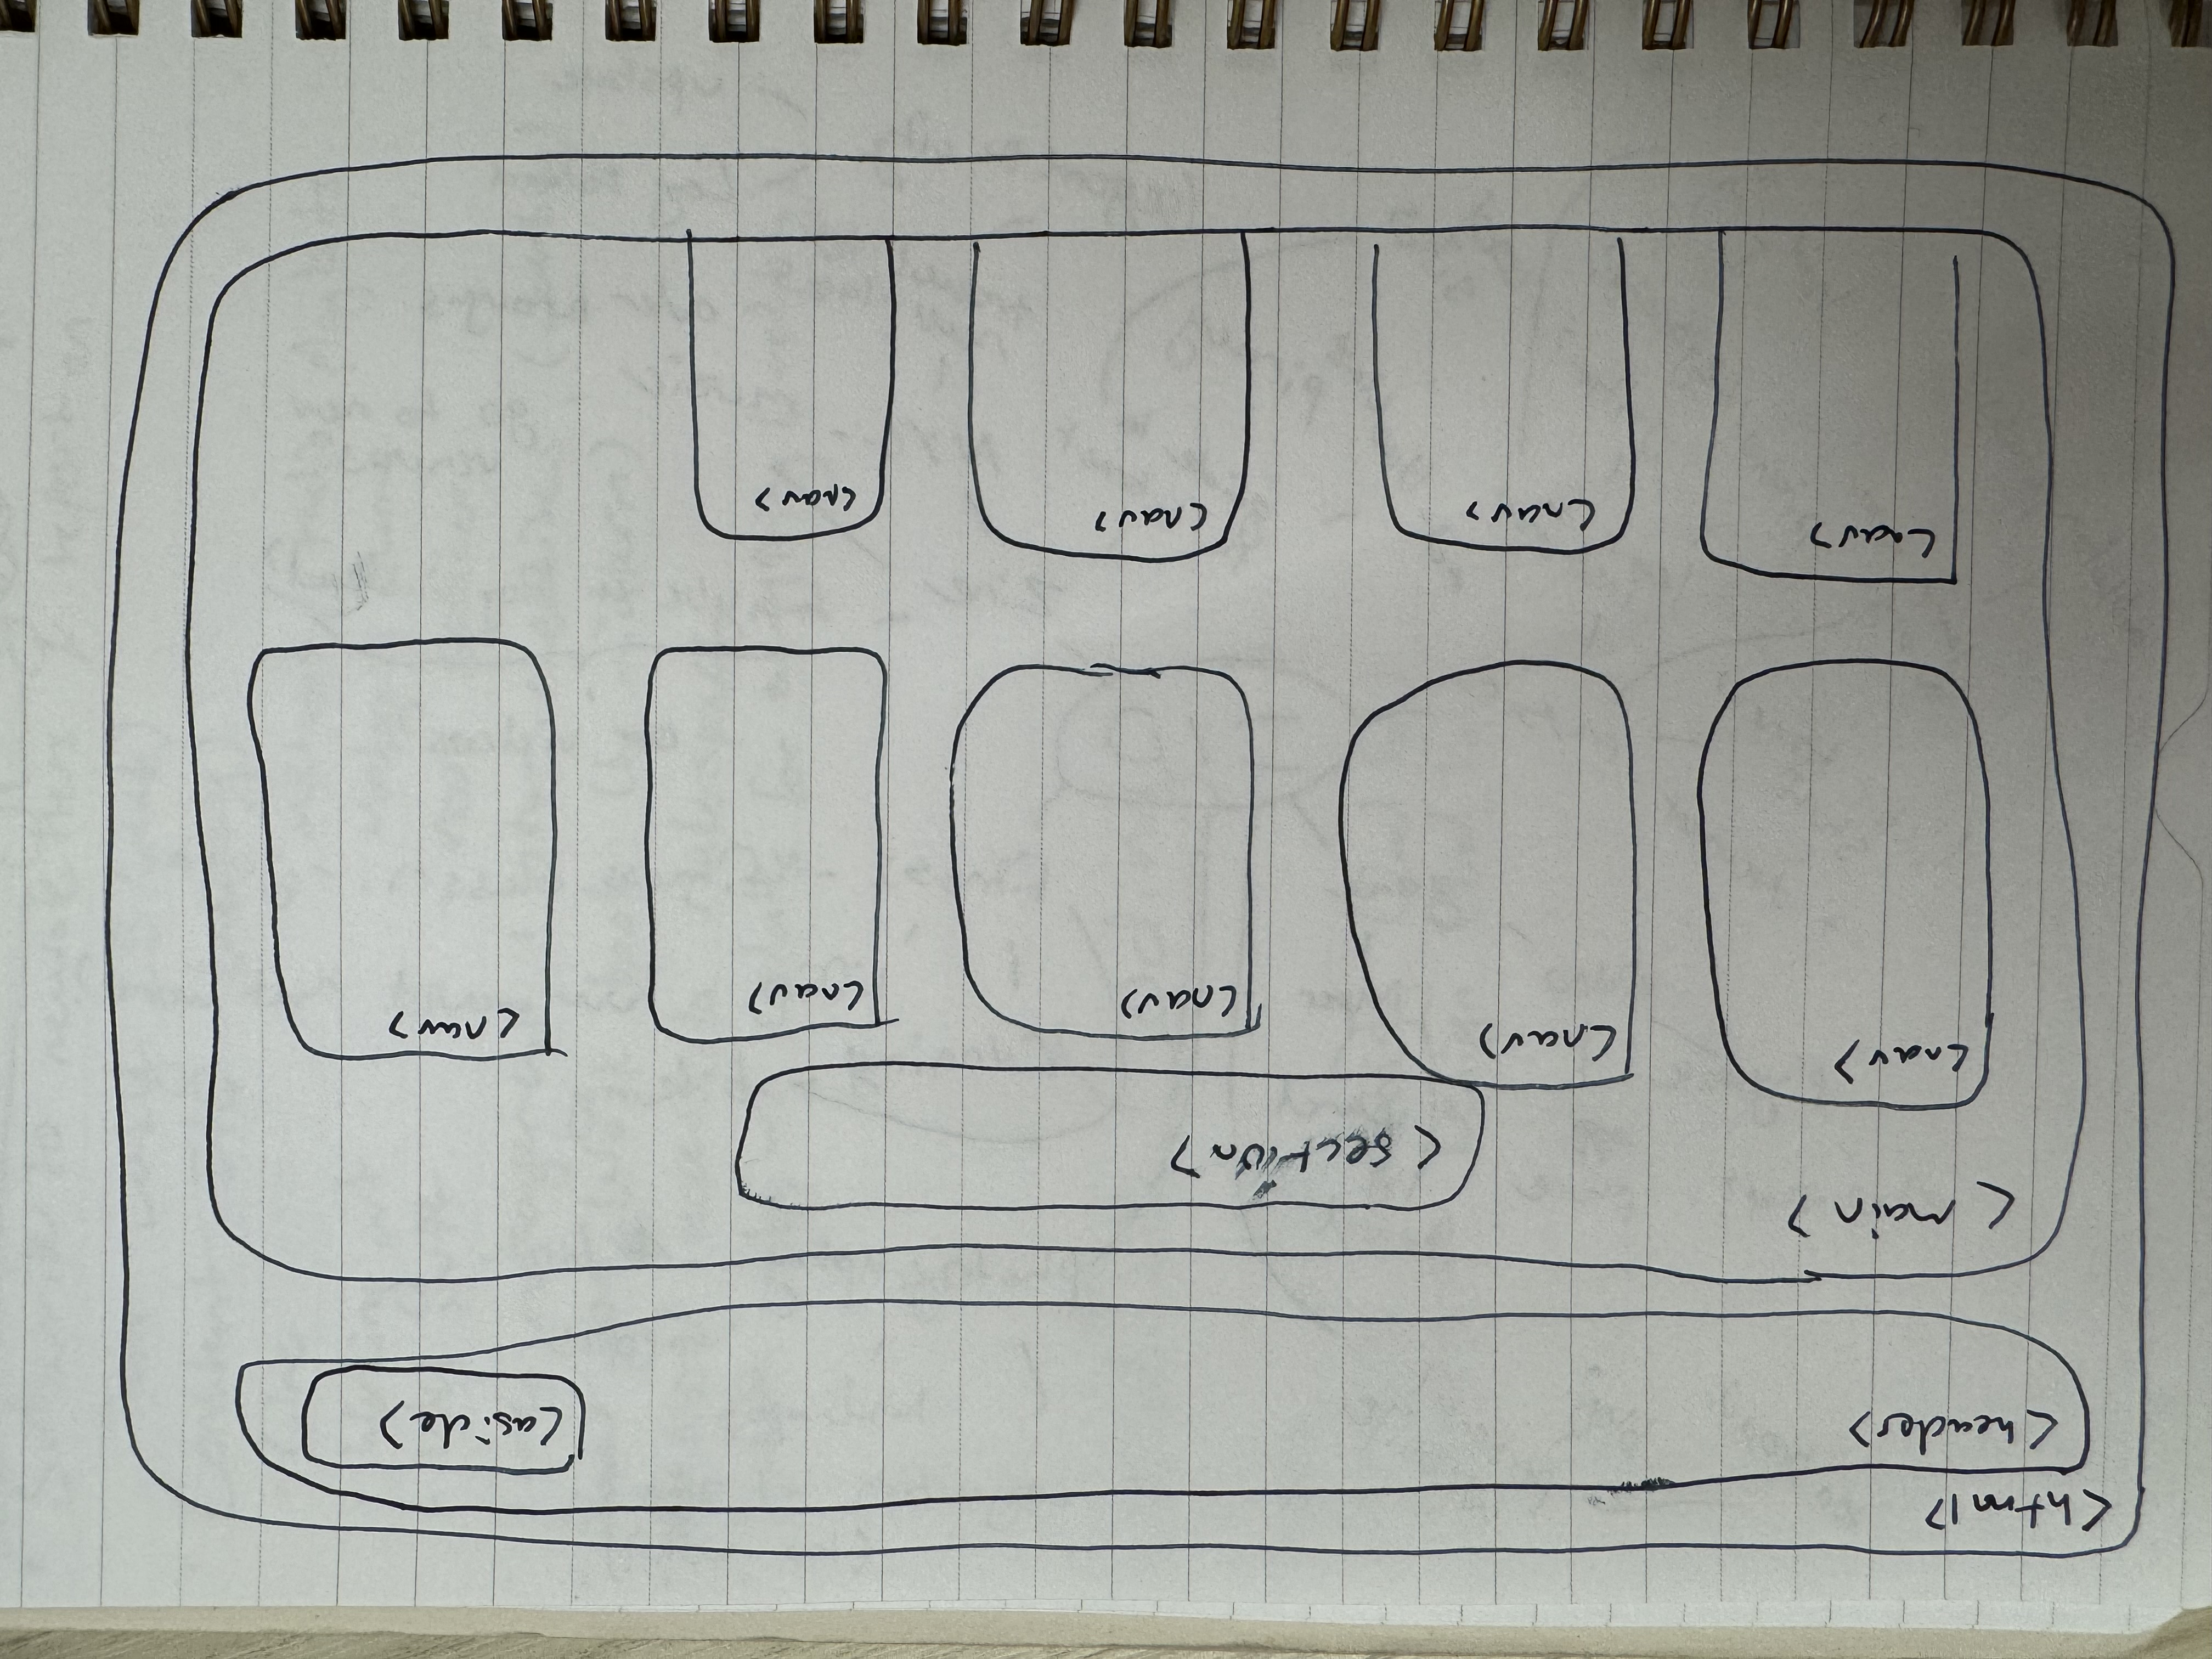 <html>
<header>
<aside>
<main>
<section>
<nav>
<nav>
<nav>
<nav>
<nav>
<nav>
<nav>
<nav>
<nav>